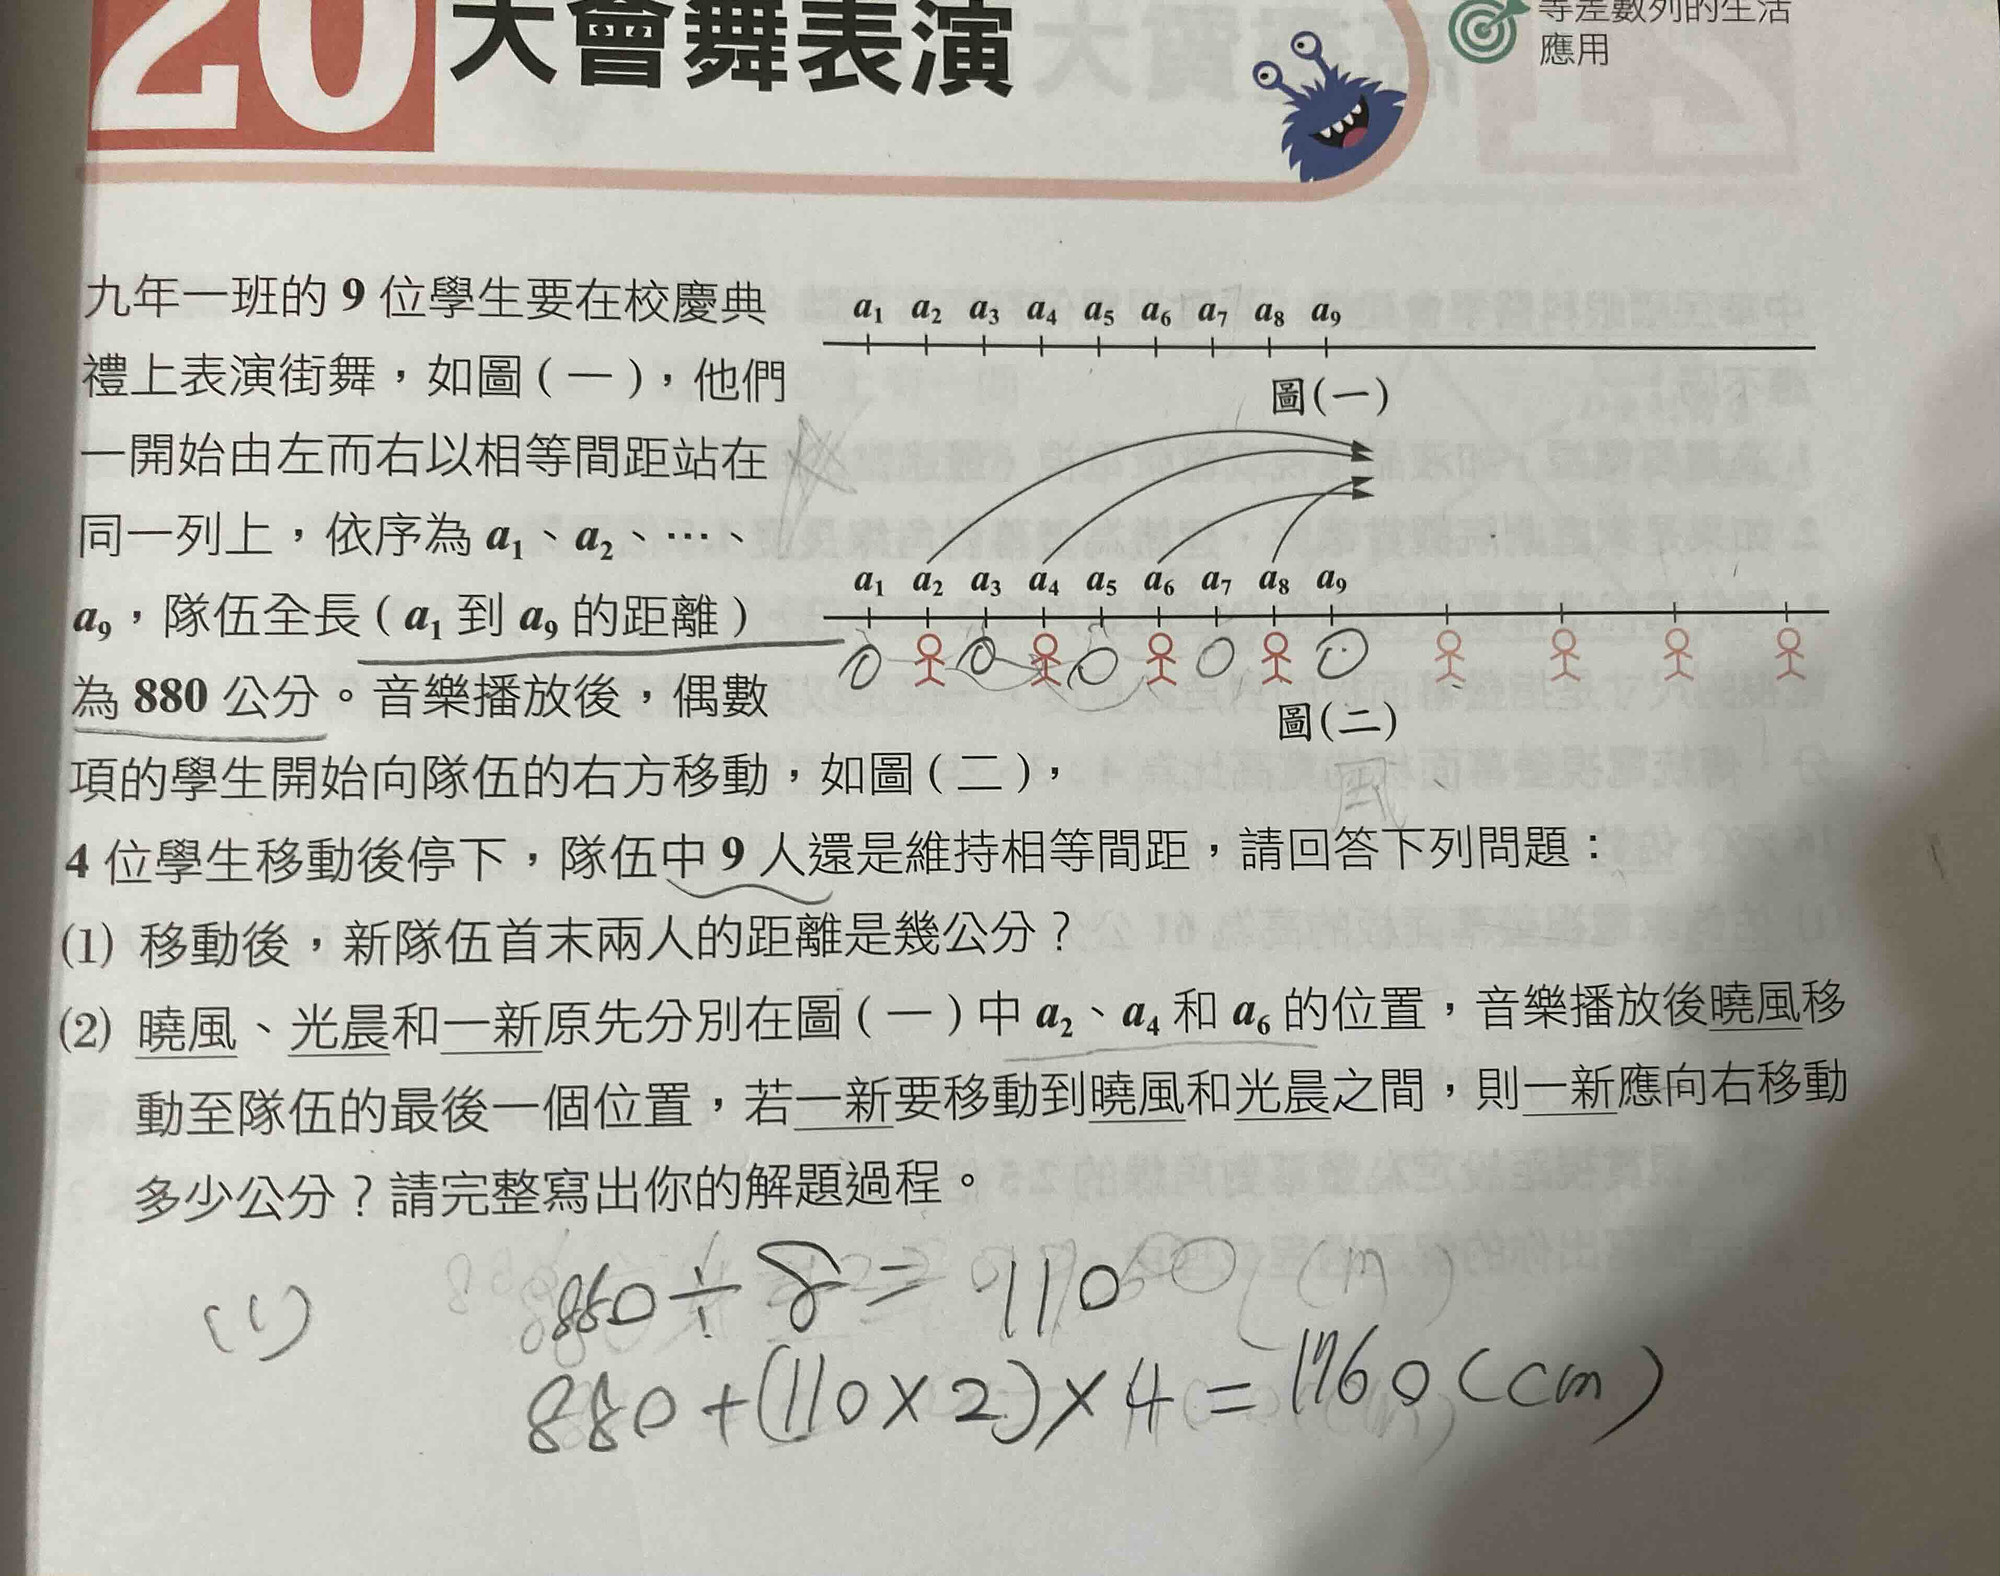 20 大會舞表演
等差數列的生活
應用
九年一班的 9 位學生要在校慶典
禮上表演街舞，如圖(一)，他們
一開始由左而右以相等間距站在
同一列上，依序為 a₁、a₂、…、
a₉，隊伍全長(a₁ 到 a₉ 的距離)
為 880 公分。音樂播放後，偶數
項的學生開始向隊伍的右方移動，如圖(二)，
4 位學生移動後停下，隊伍中 9 人還是維持相等間距，請回答下列問題：
a₁ a₂ a₃ a₄ a₅ a₆ a₇ a₈ a₉
圖(一)
a₁ a₂ a₃ a₄ a₅ a₆ a₇ a₈ a₉
圖(二)
(1) 移動後，新隊伍首末兩人的距離是幾公分？
(2) 曉風、光晨和一新原先分別在圖(一)中 a₂、a₄ 和 a₆ 的位置，音樂播放後曉風移
動至隊伍的最後一個位置，若一新要移動到曉風和光晨之間，則一新應向右移動
多少公分？請完整寫出你的解題過程。
(1) 880÷8=110
880+(110×2)×4=1760(cm)